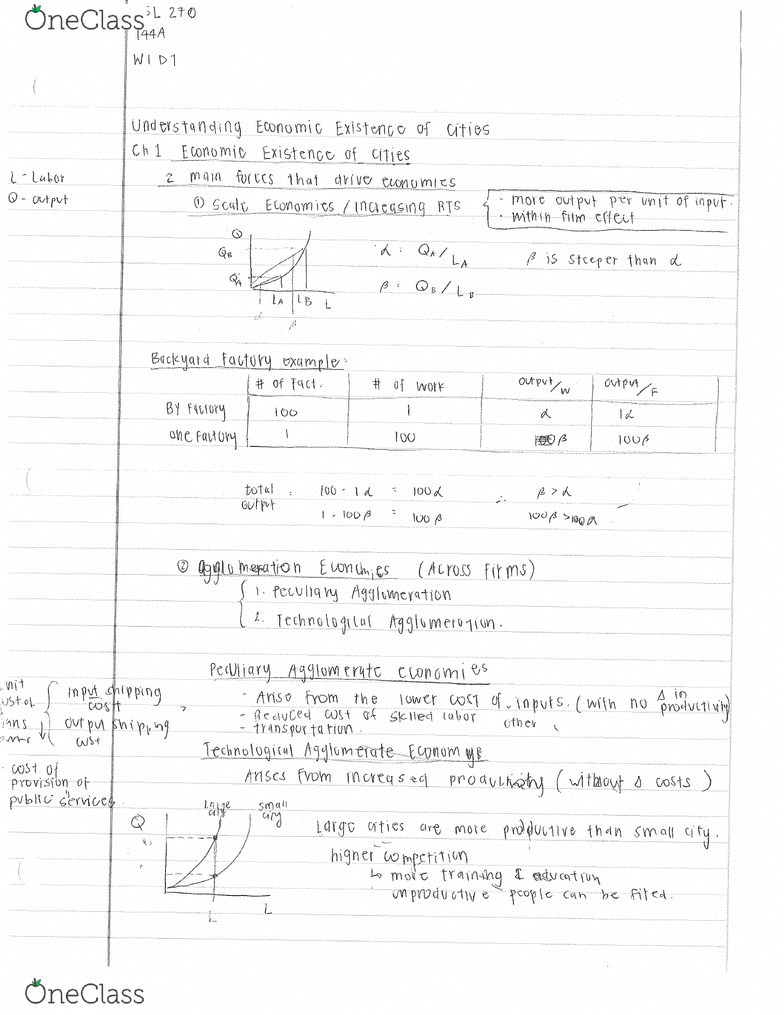 OneClass
L 270
144A
W1D1
Understanding Economic Existence of Cities
Ch 1 Economic Existence of Cities
2 main forces that drive economies
L - Labor
Q - output
① Scale Economies / Increasing RTS
· more output per unit of input.
· within film effect
Q
Q_B
Q_A
L_A L_B L
α β
α : Q_A / L_A
β is steeper than α
β : Q_B / L_B
Backyard Factory example:
# of Fact. # of work output/W output/F
BY Factory 100 1 α 1α
one Factory 1 100 β 100β
total output : 100 · 1α = 100α ∴ β > α
1 · 100β = 100β 100β > 100α
② Agglomeration Economies (Across Firms)
1. Peculiary Agglomeration
2. Technological Agglomeration.
Peculiary Agglomerate economies
- Arise from the lower cost of inputs. (with no Δ in productivity)
- Reduced cost of skilled labor other
- transportation.
input shipping cost
↓ output shipping cost
Technological Agglomerate Economies
Arises from increased productivity (without Δ costs)
cost of
provision of
public services.
Q
Large city small city
L L
Large cities are more productive than small city.
higher competition
↳ more training & education
unproductive people can be fired.
OneClass